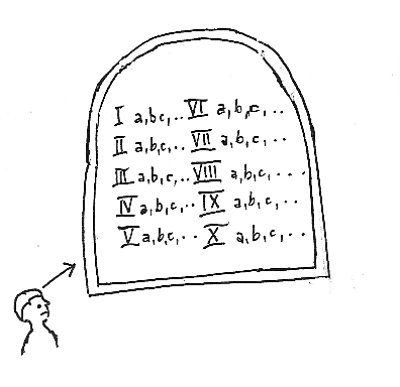 I a,b,c,.. VI a,b,c,...
II a,b,c,.. VII a,b,c,...
III a,b,c,.. VIII a,b,c,...
IV a,b,c,.. IX a,b,c,..
V a,b,c,.. X a,b,c,...